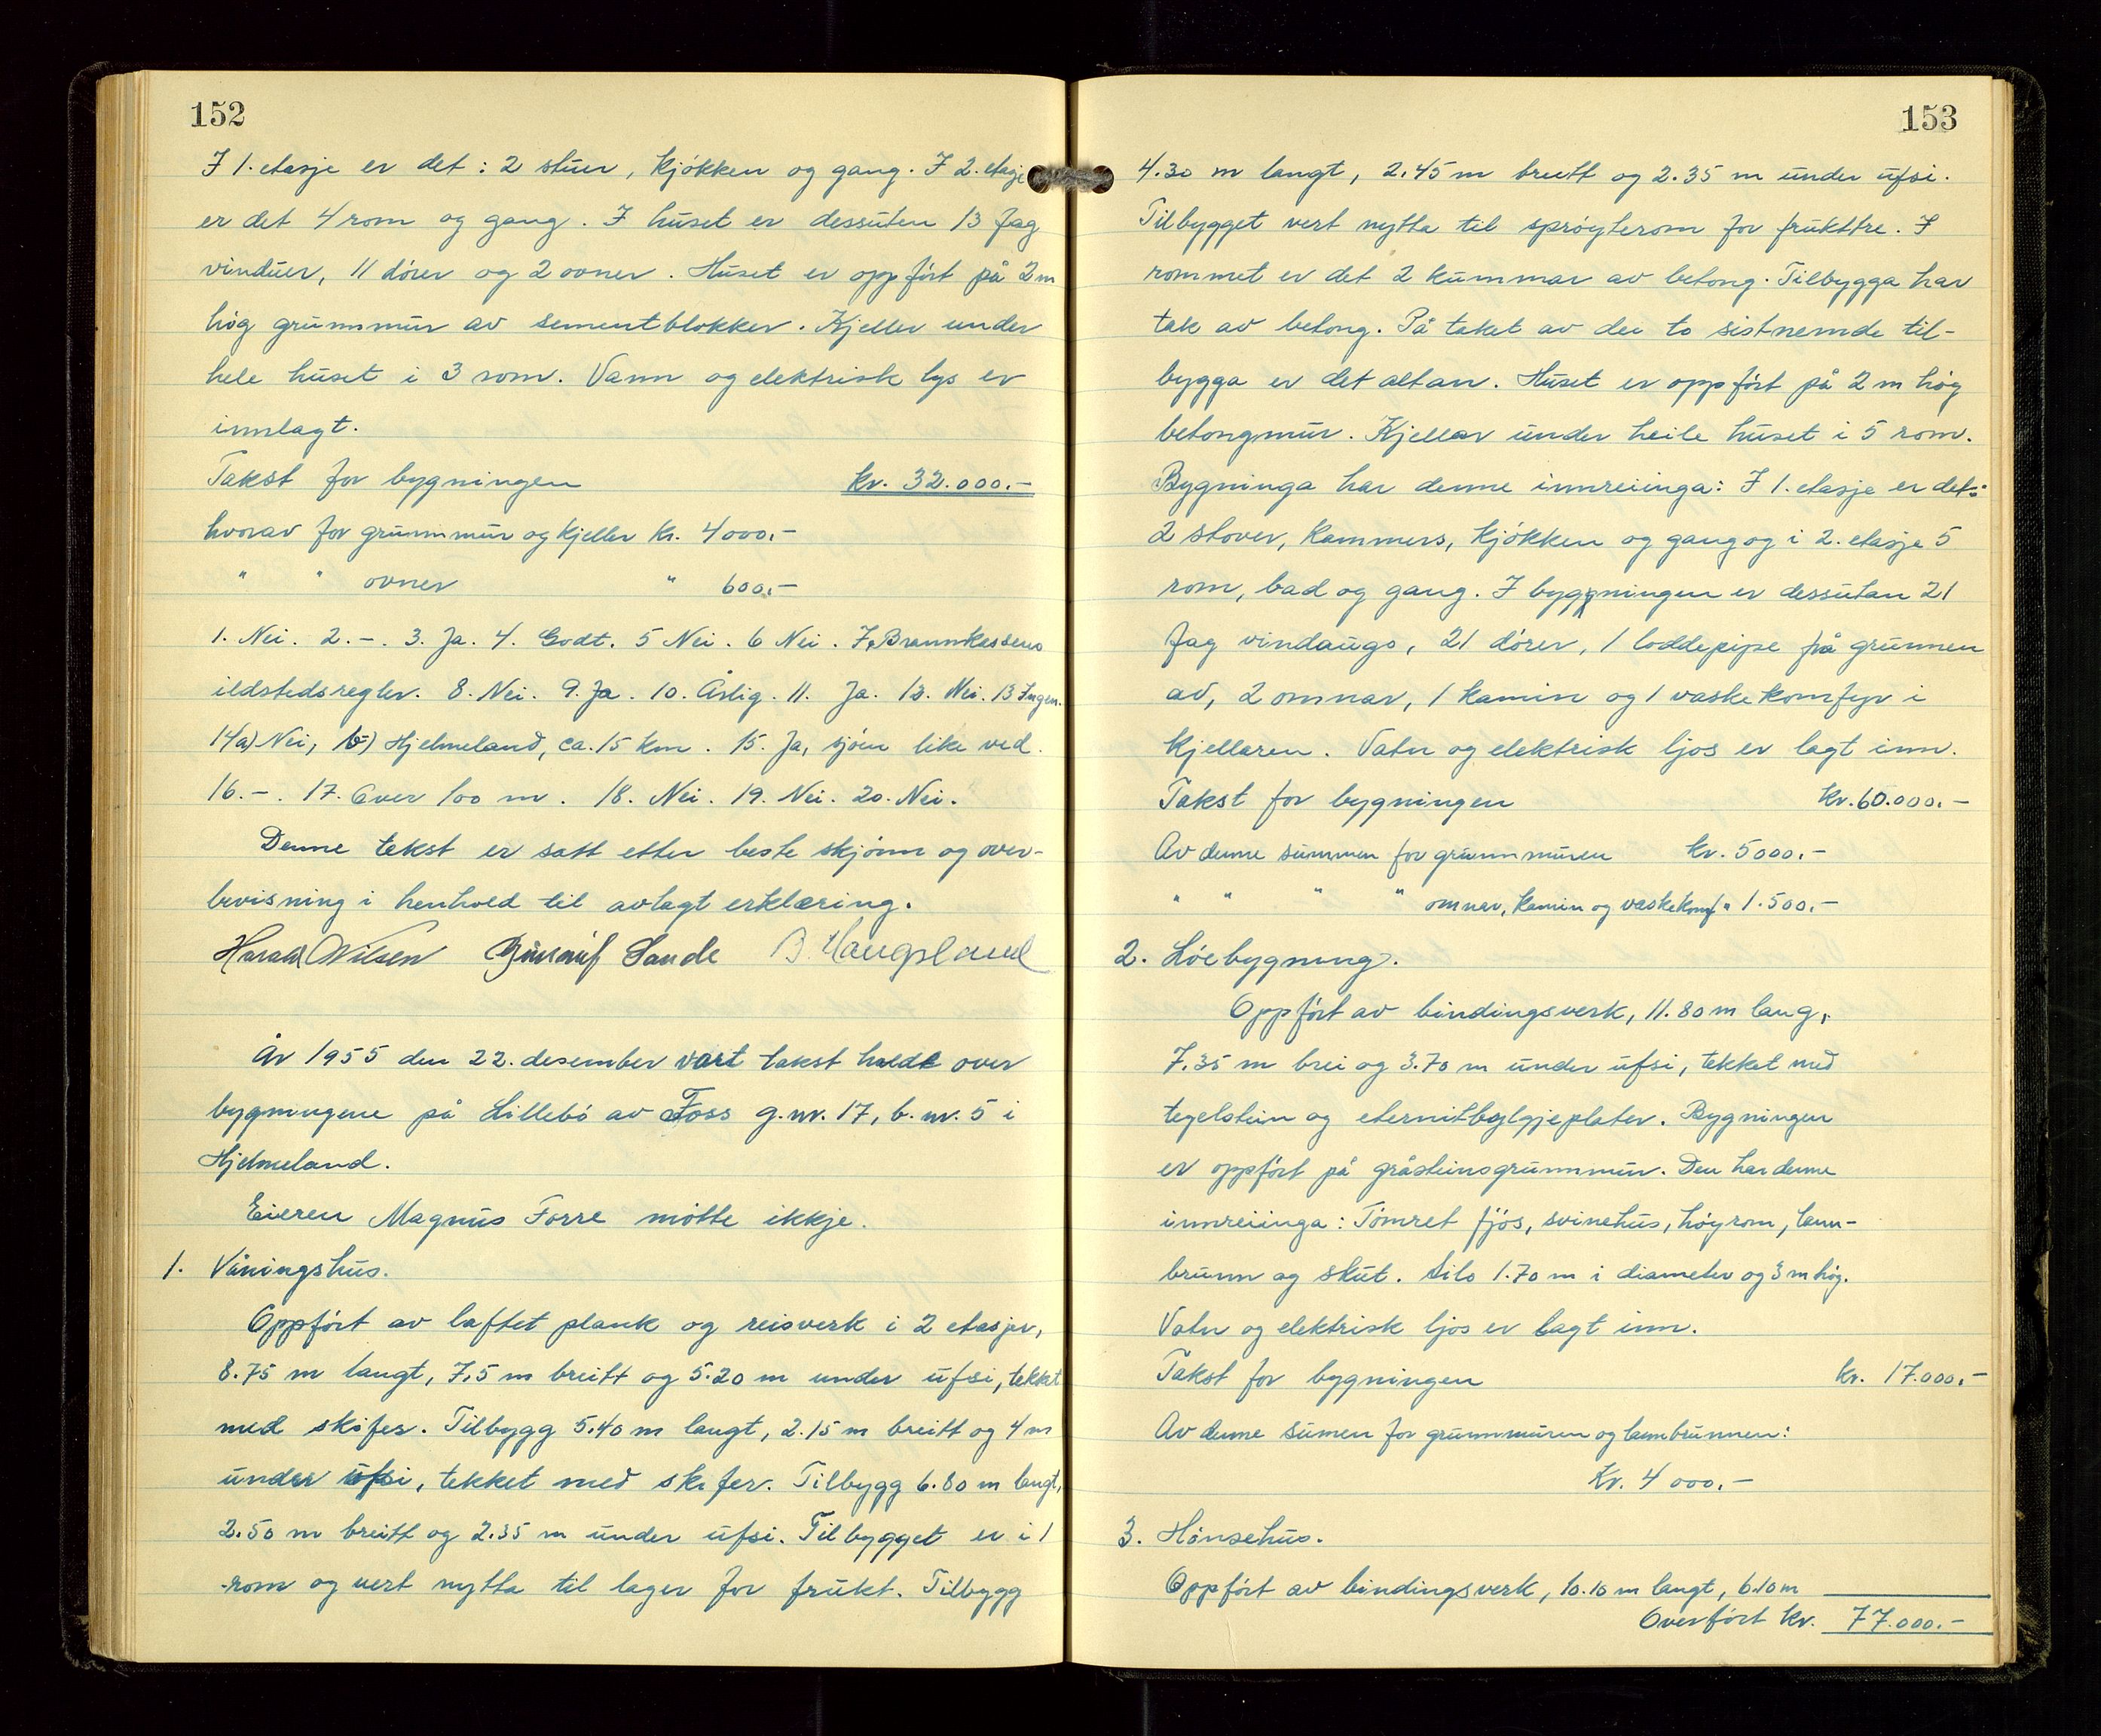 152
I 1. etasje er det: 2 stuer, kjøkken og gang. I 2. etasje
er det 4 rom og gang. I huset er dessuten 13 fag
vinduer, 11 dører og 2 ovner. Huset er oppført på 2 m
høg grunnmur av sementblokker. Kjeller under
hele huset i 3 rom. Vann og elektrisk lys er
innlagt.
Takst for bygningen kr. 32.000.-
hvorav for grunnmur og kjeller kr. 4000.-
" " ovner " 600.-
1. Nei. 2. -. 3. Ja. 4. Godt. 5 Nei. 6 Nei. 7. Brannkassens
ildstedsregler. 8. Nei. 9. Ja. 10. Årlig. 11. Ja. 12. Nei. 13 Ingen.
14a) Nei, b) Hjelmeland, ca. 15 km. 15. Ja, sjøen like ved.
16. -. 17. Over 100 m. 18. Nei. 19. Nei. 20. Nei.
Denne takst er satt etter beste skjønn og over-
bevisning i henhold til avlagt erklæring.
Harald Nilsen Sande B. Haugsland
År 1955 den 22. desember vart takst halde over
bygningene på Lillebø av Foss g.nr. 17, b.nr. 5 i
Hjelmeland.
Eieren Magnus Forre møtte ikkje.
1. Våningshus.
Oppført av laftet plank og reisverk i 2 etasjer,
8.75 m langt, 7,5 m breitt og 5.20 m under ufsi, tekket
med skifer. Tilbygg 5.40 m langt, 2.15 m breitt og 4 m
under ufsi, tekket med skifer. Tilbygg 6.80 m langt,
2.50 m breitt og 2.35 m under ufsi. Tilbygget er i 1
rom og vert nytta til lager for frukt. Tilbygg
153
4.30 m langt, 2.45 m breitt og 2.35 m under ufsi.
Tilbygget vert nytta til sprøyterom for frukttre. I
rommet er det 2 kummar av betong. Tilbygga har
tak av betong. På taket av dei to sistnemde til-
bygga er det altan. Huset er oppført på 2 m høg
betongmur. Kjellar under heile huset i 5 rom.
Bygninga har denne innreiinga: I 1. etasje er det:
2 stover, kammers, kjøkken og gang og i 2. etasje 5
rom, bad og gang. I bygningen er dessutan 21
fag vindaugo, 21 dører, 1 loddepipe frå grunnen
av, 2 omnar, 1 kamin og 1 vaskekomfyr i
kjellaren. Vatn og elektrisk ljos er lagt inn.
Takst for bygningen kr. 60.000.-
Av denne summen for grunnmuren kr. 5000.-
" " " " omnar, kamin og vaskekomf. " 1.500.-
2. Løebygning.
Oppført av bindingsverk, 11.80 m lang,
7.35 m brei og 3.70 m under ufsi, tekket med
tegelstein og eternitbølgjeplater. Bygningen
er oppført på gråsteinsgrunnmur. Den har denne
innreiinga: Tømret fjøs, svinehus, høyrom, lann-
brunn og skut. Silo 1.70 m i diameter og 3 m høg.
Vatn og elektrisk ljos er lagt inn.
Takst for bygningen kr. 17.000.-
Av denne sumen for grunnmuren og lannbrunnen:
Kr. 4 000.-
3. Hønsehus.
Oppført av bindingsverk, 10.10 m langt, 6.10 m
Overført kr. 77.000.-